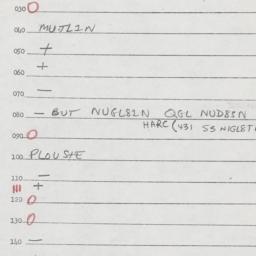 030 O
040 MUTLIN
050 +
060 +
070 —
080 — BUT NUGL81N QGL NUD8SN
HARC (431 55 NIGLET
090 O
100 PLOUSTE
110 —
+
120 O
130 O
140 —